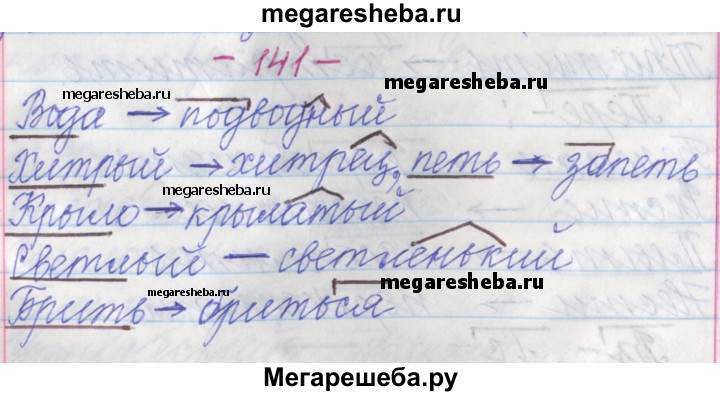 megaresheba.ru
- 141 -
megaresheba.ru megaresheba.ru
Вода → подводный
Хитрый → хитрец, петь → запеть
megaresheba.ru
Крыло → крылатый
Светлый — светленький
megaresheba.ru megaresheba.ru
Брить → бриться
Мегарешеба.ру